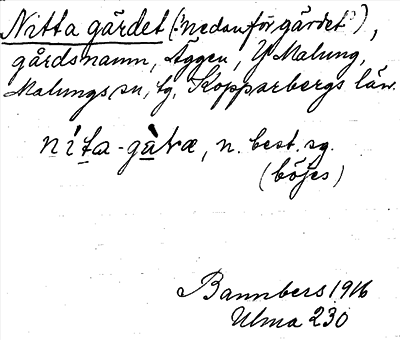 Nitta gärdet ("nedanför gärdet"),
gårdsnamn, Aggen, Y. Malung,
Malungs sn, fg. Kopparbergs län.
níta-gàræ, n. best. sg.
(böjes)
Bannbers 1916
Ulma 230